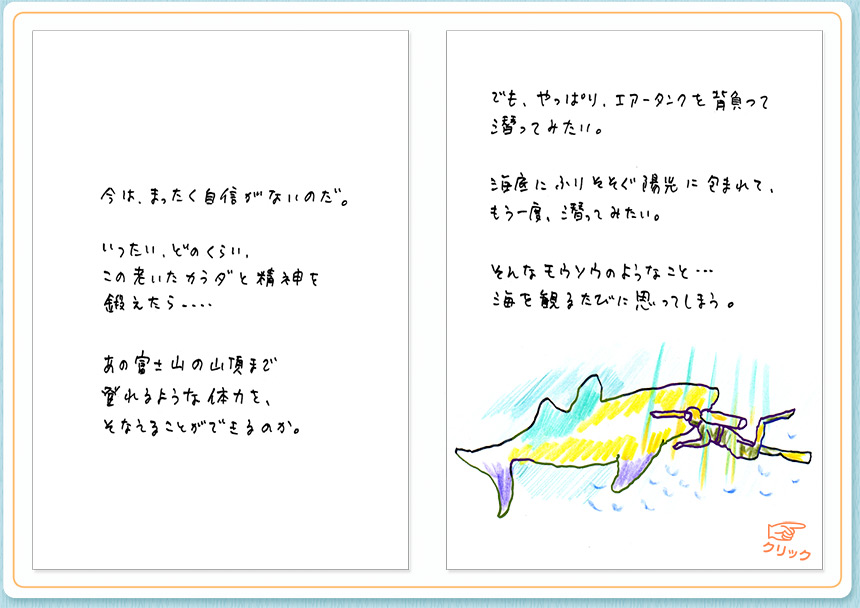 今は、まったく自信がないのだ。
いったい、どのくらい、
この老いたカラダと精神を
鍛えたら‥‥
あの富士山の山頂まで
登れるような体力を、
そなえることができるのか。
でも、やっぱり、エアータンクを背負って
潜ってみたい。
海底にふりそそぐ陽光に包まれて、
もう一度、潜ってみたい。
そんなモウソウのようなこと…
海を観るたびに思ってしまう。
クリック